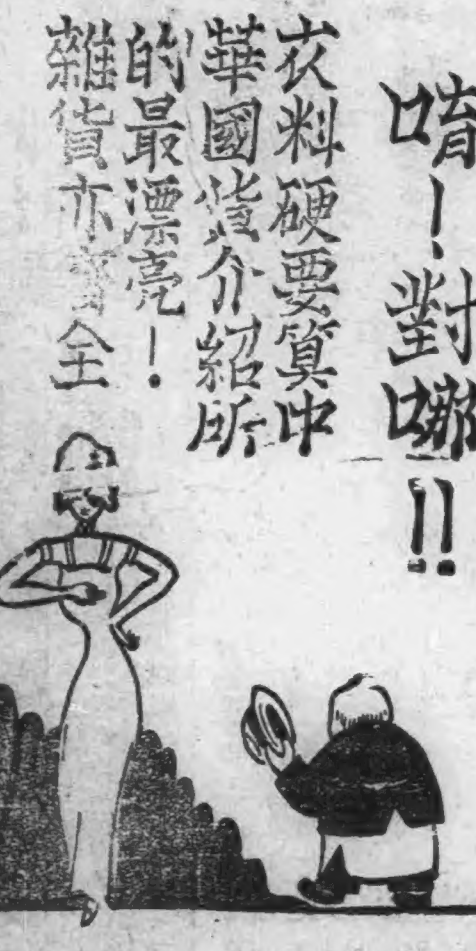 唷！對哪!!
衣料硬要算中
華國貨介紹所
的最漂亮！
雜貨亦齊全